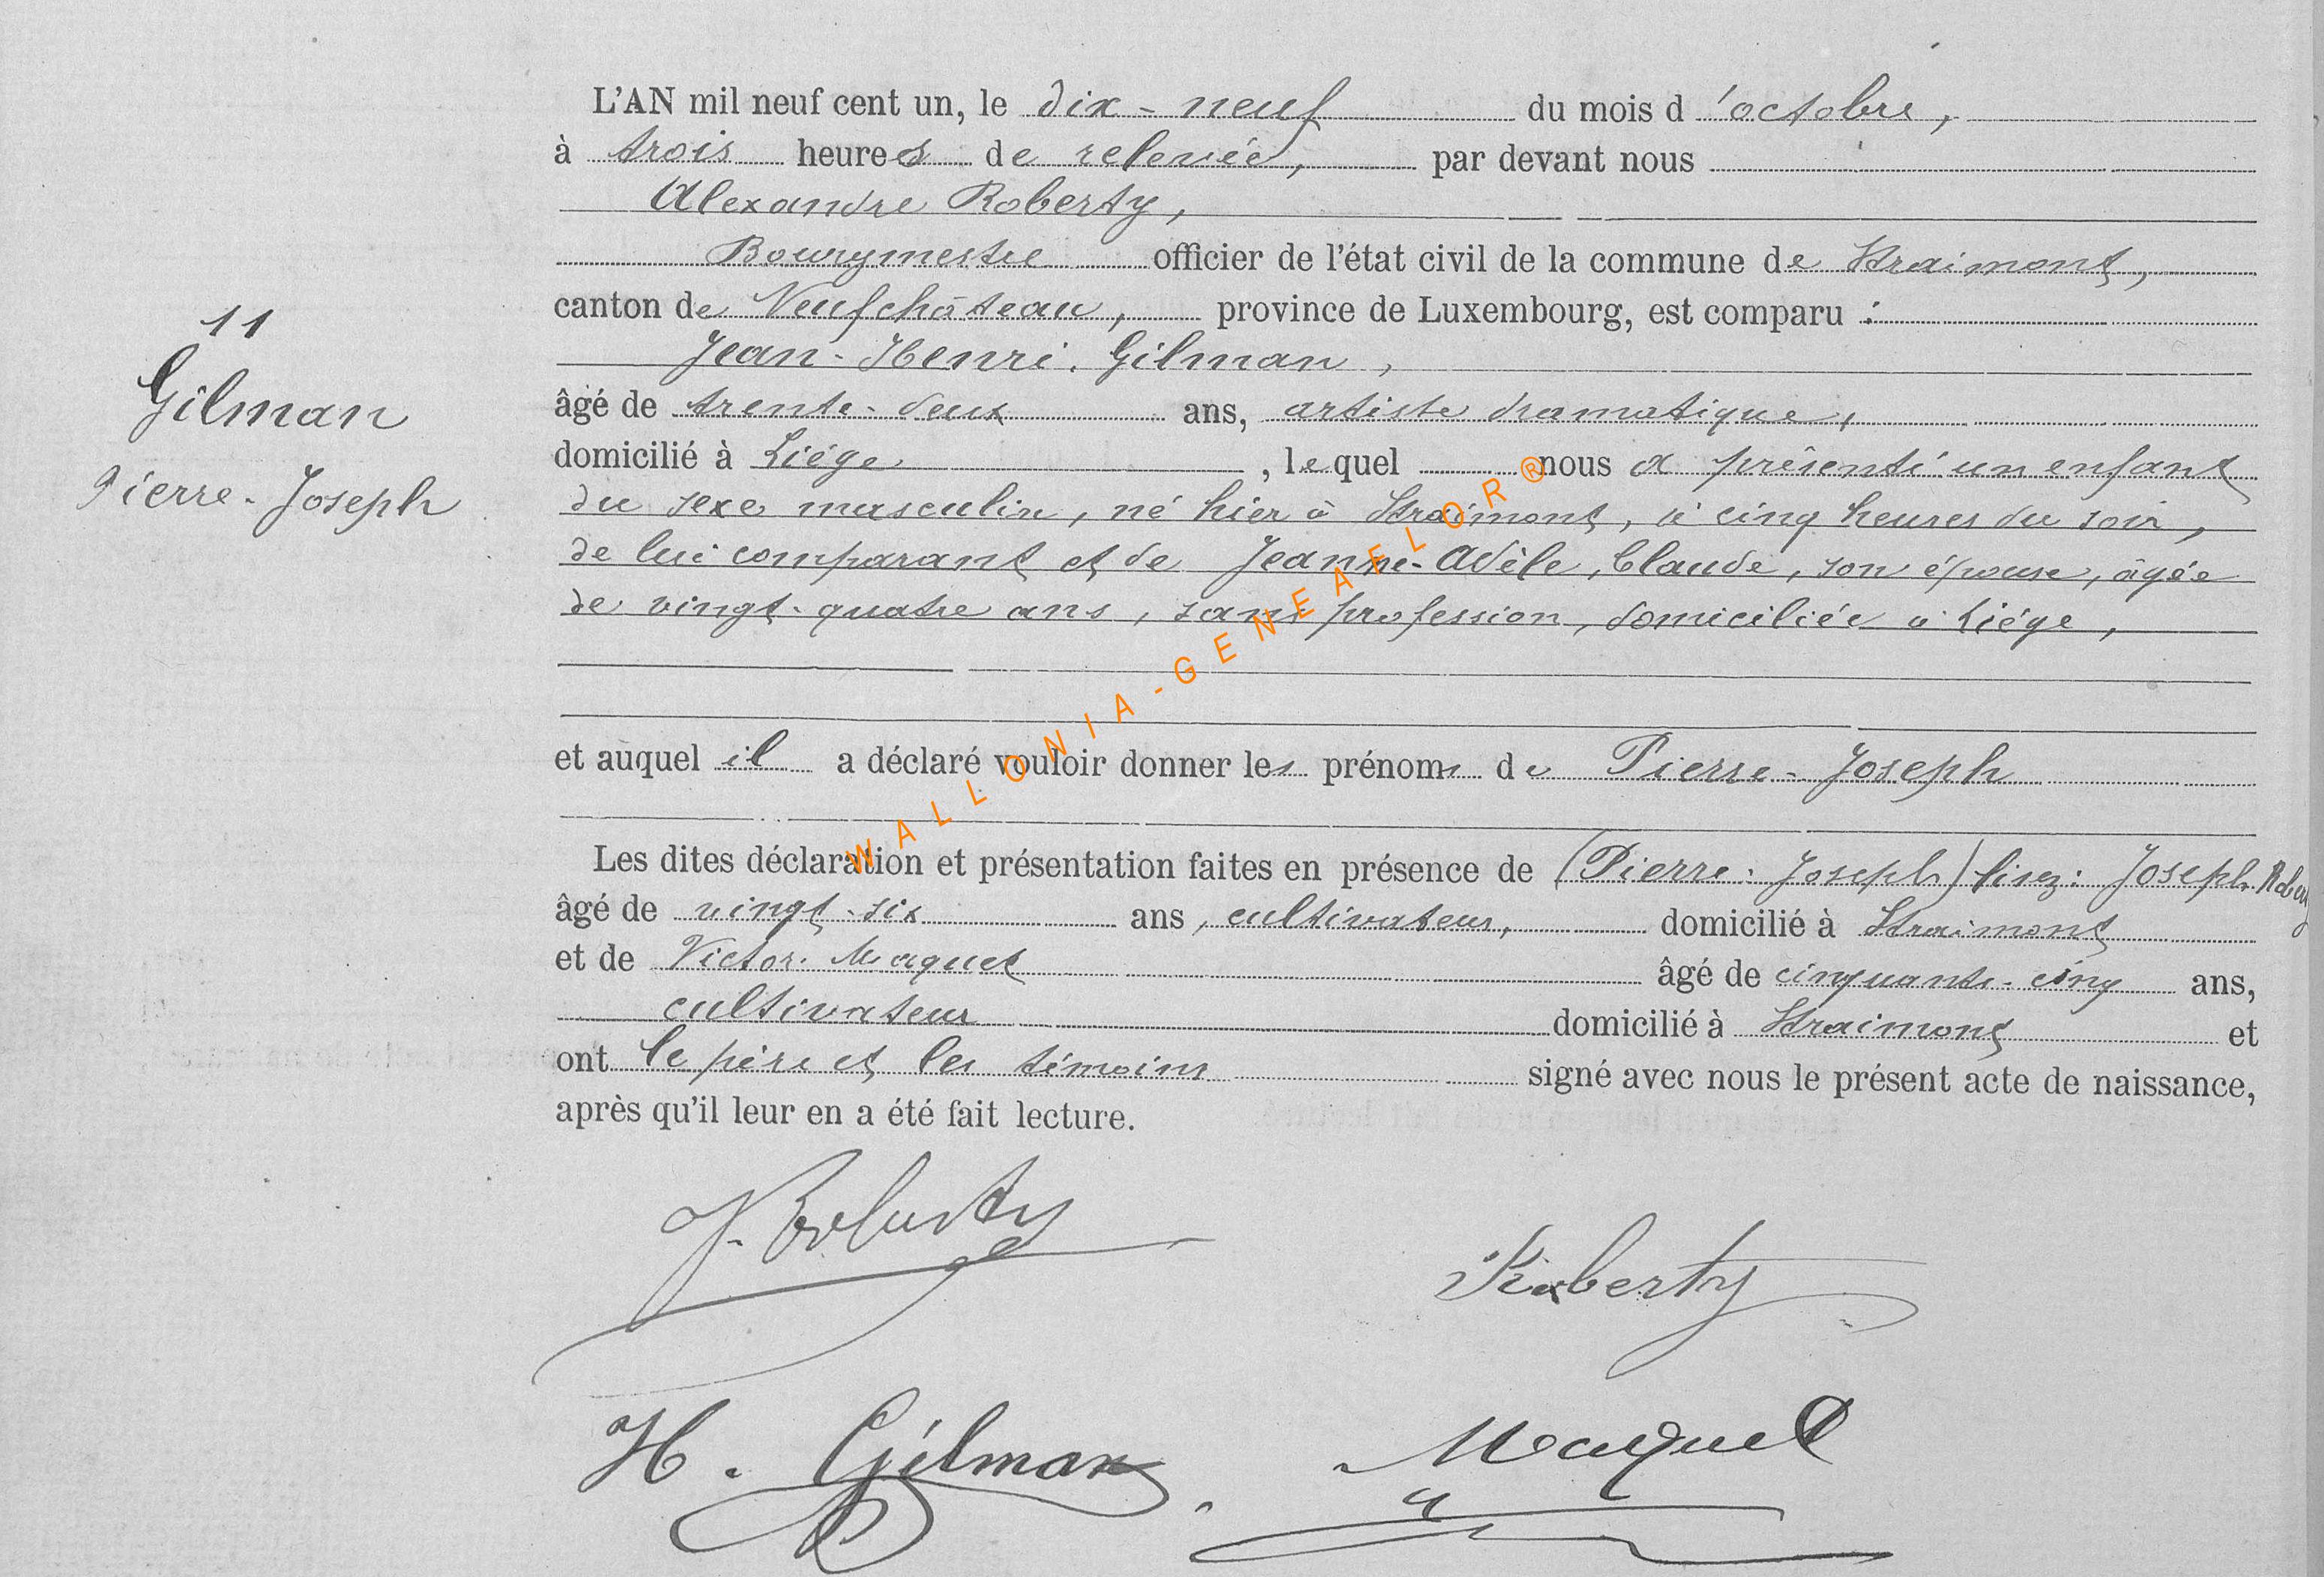 11
Gilman
Pierre-Joseph
L'AN mil neuf cent un, le dix-neuf du mois d'octobre,
à trois heures de relevée, par devant nous
Alexandre Roberty,
Bourgmestre officier de l'état civil de la commune de Straimont,
canton de Neufchâteau, province de Luxembourg, est comparu :
Jean-Henri Gilman,
âgé de trente-deux ans, artiste dramatique,
domicilié à Liége, lequel nous a présenté un enfant
du sexe masculin, né hier à Straimont, à cinq heures du soir,
de lui comparant et de Jeanne-Adèle, Claude, son épouse, âgée
de vingt-quatre ans, sans profession, domiciliée à Liége,
et auquel il a déclaré vouloir donner les prénoms de Pierre-Joseph
Les dites déclaration et présentation faites en présence de (Pierre-Joseph) lisez: Joseph Roberty
âgé de vingt-six ans, cultivateur, domicilié à Straimont
et de Victor Maquet âgé de cinquante-cinq ans,
cultivateur domicilié à Straimont et
ont le père et les témoins signé avec nous le présent acte de naissance,
après qu'il leur en a été fait lecture.
J. Roberty
Roberty
H. Gilman
Maquet
WALLONIA-GENEAFLOR®